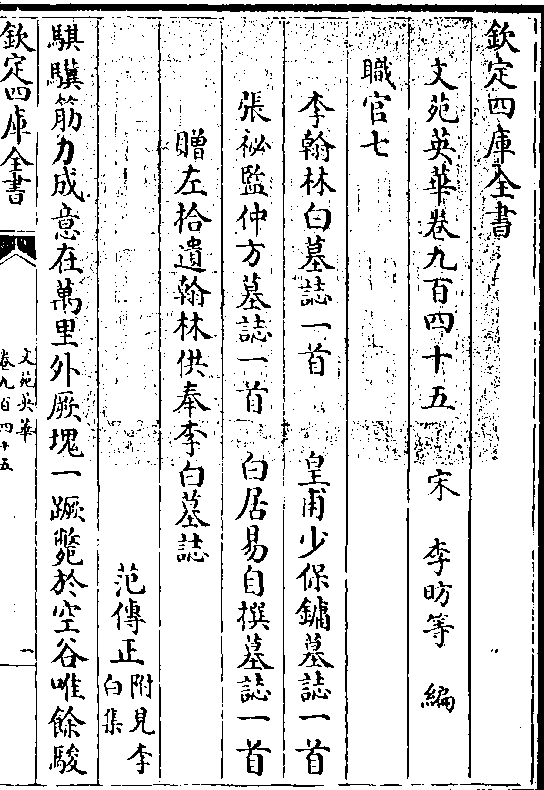 欽定四庫全書
文苑英華卷九百四十五 宋 李昉等 編
職官七
李翰林白墓誌一首 皇甫少保鏞墓誌一首
張祕監仲方墓誌一首 白居易自撰墓誌一首
贈左拾遺翰林供奉李白墓誌
范傳正 附見李白集
騏驥筋力成意在萬里外厥塊一蹶斃於空谷唯餘駿
欽定四庫全書
文苑英華
卷九百四十五
一